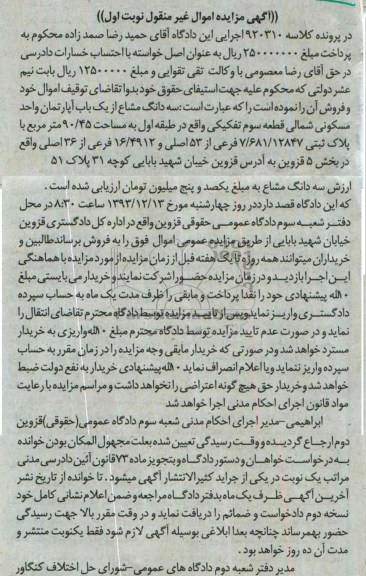 ((آگهی مزایده اموال غیر منقول نوبت اول))
در پرونده کلاسه ۹۲۰۳۱۰ اجرایی این دادگاه آقای حمید رضا صمد زاده محکوم به
پرداخت مبلغ ۲۵۰۰۰۰۰۰۰ ریال به عنوان اصل خواسته با احتساب خسارات دادرسی
در حق آقای رضا معصومی با وکالت تقی تقوایی و مبلغ ۱۲۵۰۰۰۰۰ ریال بابت نیم
عشر دولتی که محکوم علیه جهت استیفای حقوق خود بدوا تقاضای توقیف اموال خود
و فروش آن را نموده است را که عبارت است :سه دانگ مشاع از یک باب آپارتمان واحد
مسکونی شمالی قطعه سوم تفکیکی واقع در طبقه اول به مساحت ۹۰/۴۵ متر مربع با
پلاک ثبتی ۷/۶۸۱/۱۲۸۴۷ فرعی از ۵۳ اصلی و ۱۶/۴۹۱۲ فرعی از ۳۶ اصلی واقع
در بخش ۵ قزوین به آدرس قزوین خیبان شهید بابایی کوچه ۳۱ پلاک ۵۱
ارزش سه دانگ مشاع به مبلغ یکصد و پنج میلیون تومان ارزیابی شده است .
که این دادگاه قصد دارددر روز چهارشنبه مورخ ۱۳۹۳/۱۲/۱۳ ساعت ۸:۳۰ در محل
دفتر شعبه سوم دادگاه عمومی حقوقی قزوین واقع در اداره کل دادگستری قزوین
خیابان شهید بابایی از طریق مزایده عمومی اموال فوق را به فروش برساندطالبین و
خریداران میتوانند همه روزه تا یک هفته قبل از زمان مزایده از مورد مزایده با هماهنگی
این اجرا بازدید و در زمان مزایده حضور اشرکت نمایند و خریدار می بایستی مبلغ
۱۰٪ پیشنهادی خود را نقدا پرداخت و مابقی را ظرف مدت یک ماه به حساب سپرده
دادگستری واریز نمایدوپس از تایید مزایده توسط دادگاه محترم تقاضای انتقال را
نماید و در صورت عدم تایید مزایده توسط دادگاه محترم مبلغ ۱۰٪ واریزی به خریدار
مسترد خواهد شد ودر صورتی که خریدار مابقی وجه مزایده را در زمان مقرر به حساب
سپرده واریز ننماید ویا اعلام انصراف نماید ۱۰٪پیشنهادی خریدار به نفع دولت ضبط
خواهد شد وخریدار حق هیچ گونه اعتراضی را نخواهد داشت و مراسم مزایده با رعایت
مواد قانون اجرای احکام مدنی اجرا خواهد شد
ابراهیمی-مدیر اجرای احکام مدنی شعبه سوم دادگاه عمومی(حقوقی)قزوین
دوم ارجاع گردیده و وقت رسیدگی تعیین شده بعلت مجهول المکان بودن خوانده
به درخواست خواهان و دستور دادگاه و بتجویز ماده ۷۳قانون آئین دادرسی مدنی
مراتب یک نوبت در یکی از جراید کثیرالانتشار آگهی میشود. تا خوانده از تاریخ نشر
آخرین آگهی ظرف یک ماه بدفتر دادگاه مراجعه و ضمن اعلام نشانی کامل خود
نسخه دوم دادخواست و ضمائم را دریافت نماید و در وقت مقرر بالا جهت رسیدگی
حضور بهمرساند چنانچه بعدا ابلاغی بوسیله آگهی لازم شود فقط یکنوبت منتشر و
مدت آن ده روز خواهد بود .
مدیر دفتر شعبه دوم دادگاه های عمومی-شورای حل اختلاف کنگاور